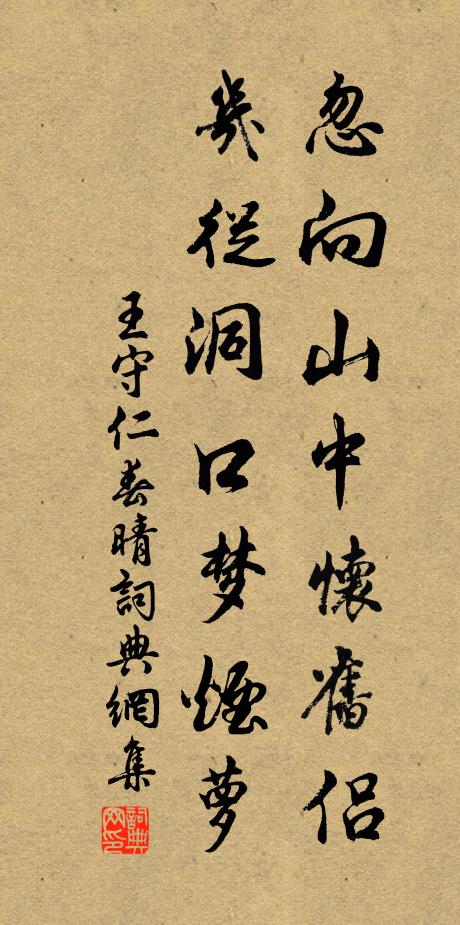 忽向山中懷舊侶
幾從洞口梦煙萝
王守仁春晴詞典網集
詞典
网印